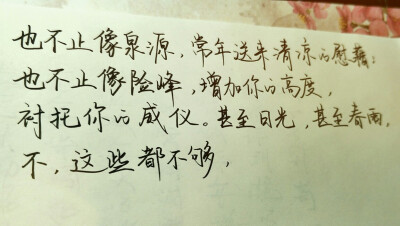 也不止像泉源，常年送来清凉的慰藉；
也不止像险峰，增加你的高度，
衬托你的威仪。甚至日光，甚至春雨。
不，这些都不够，